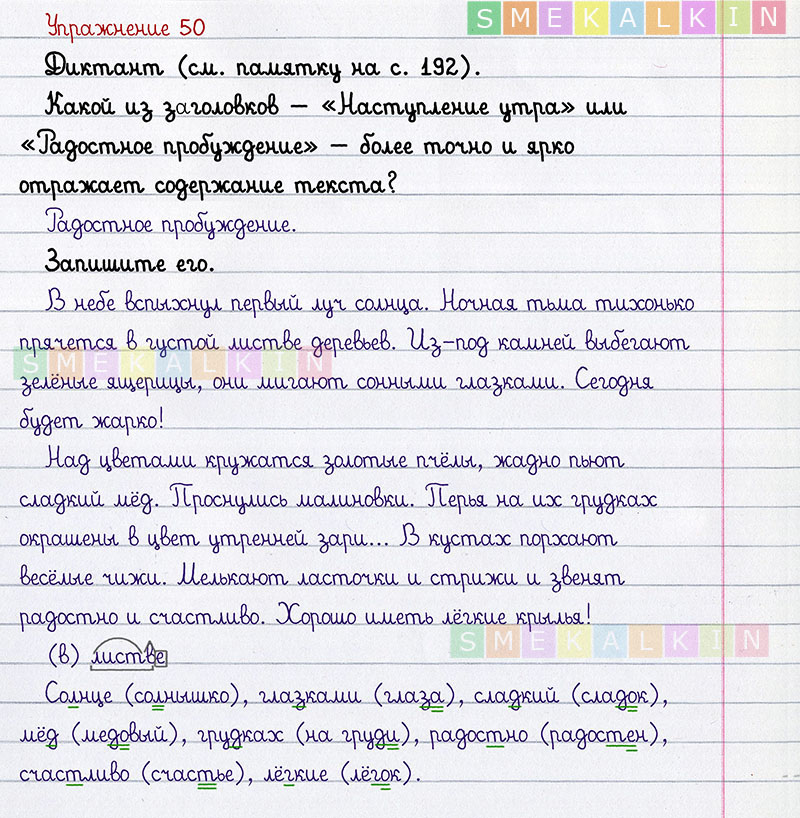 Упражнение 50
SMEKALKIN
Диктант (см. памятку на с. 192).
Какой из заголовков — «Наступление утра» или
«Радостное пробуждение» — более точно и ярко
отражает содержание текста?
Радостное пробуждение.
Запишите его.
В небе вспыхнул первый луч солнца. Ночная тьма тихонько
прячется в густой листве деревьев. Из-под камней выбегают
SMEKALKIN
зелёные ящерицы, они мигают сонными глазками. Сегодня
будет жарко!
Над цветами кружатся золотые пчёлы, жадно пьют
сладкий мёд. Проснулись малиновки. Перья на их грудках
окрашены в цвет утренней зари... В кустах порхают
весёлые чижи. Мелькают ласточки и стрижи и звенят
радостно и счастливо. Хорошо иметь лёгкие крылья!
SMEKALKIN
(в) листве
Солнце (солнышко), глазками (глаза), сладкий (сладок),
мёд (медовый), грудках (на груди), радостно (радостен),
счастливо (счастье), лёгкие (лёгок).